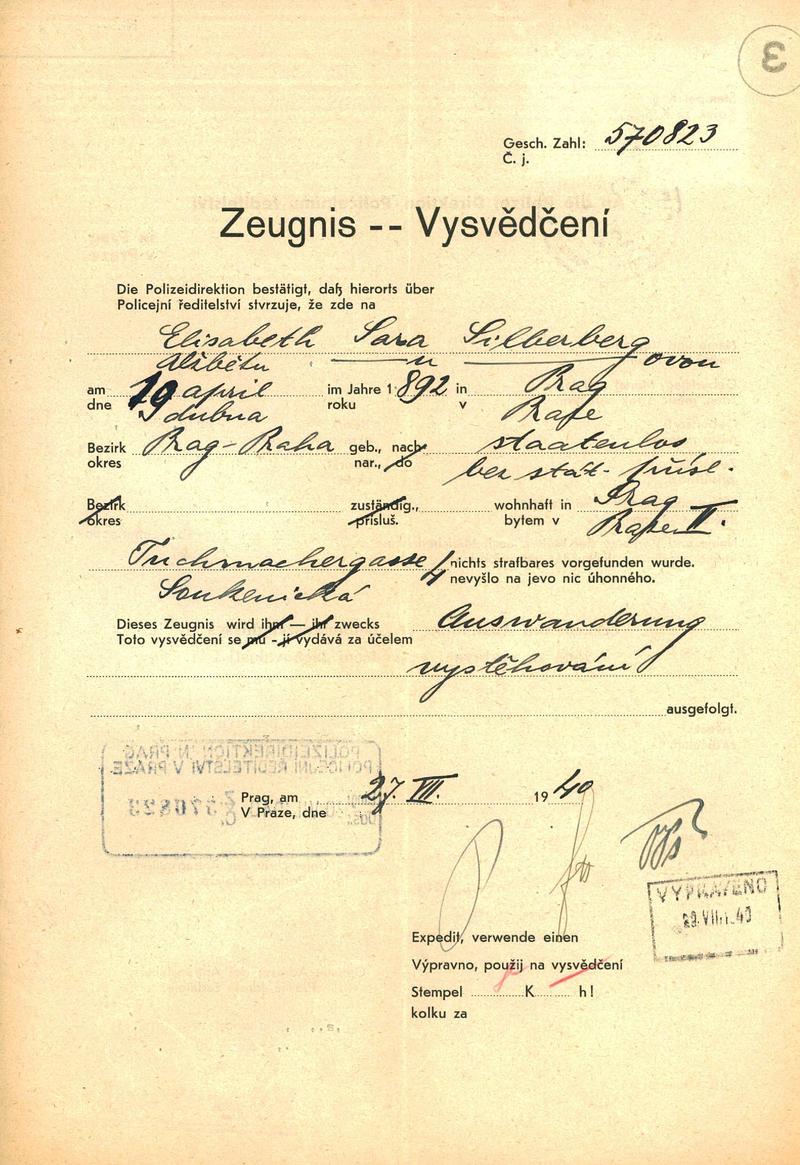 3
Gesch. Zahl: 570823
Č. j.
Zeugnis -- Vysvědčení
Die Polizeidirektion bestätigt, daß hierorts über
Policejní ředitelství stvrzuje, že zde na
Elisabeth Sara Silberberg
Alžbětu — " — ovou
am 19 april im Jahre 1892 in Prag
dne 19 dubna roku v Praze
Bezirk Prag-Praha geb., nach staatenlos
okres nar., do bez stát. přísl.
Bezirk zuständig., wohnhaft in Prag
okres přísluš. bytem v Praze II.
Tuchmachergasse 4 nichts strafbares vorgefunden wurde.
Soukenická nevyšlo na jevo nic úhonného.
Dieses Zeugnis wird ihm — ihr zwecks Auswanderung
Toto vysvědčení se mu - jí vydává za účelem
vystěhování
ausgefolgt.
POLIZEIDIREKTION IN PRAG
POLICEJNÍ ŘEDITELSTVÍ V PRAZE
570823
Prag, am 27. VII. 1940
V Praze, dne
VYPRAVENO
Expedit, verwende einen
Výpravno, použij na vysvědčení
Stempel K h!
kolku za